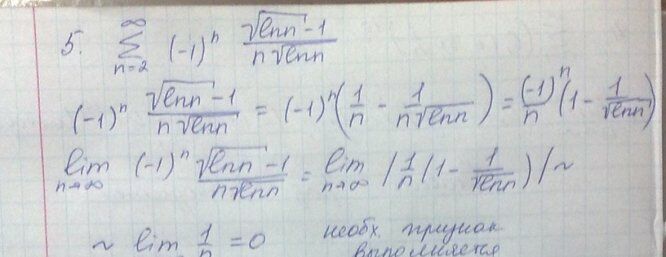 5. ∑_{n=2}^{∞} (-1)^n (√(ln n) - 1)/(n√(ln n))
(-1)^n (√(ln n) - 1)/(n√(ln n)) = (-1)^n (1/n - 1/(n√(ln n))) = (-1)^n/n (1 - 1/√(ln n))
lim_{n→∞} (-1)^n (√(ln n) - 1)/(n√(ln n)) = lim_{n→∞} |1/n (1 - 1/√(ln n))| ~
~ lim 1/n = 0 необх. признак
выполняется